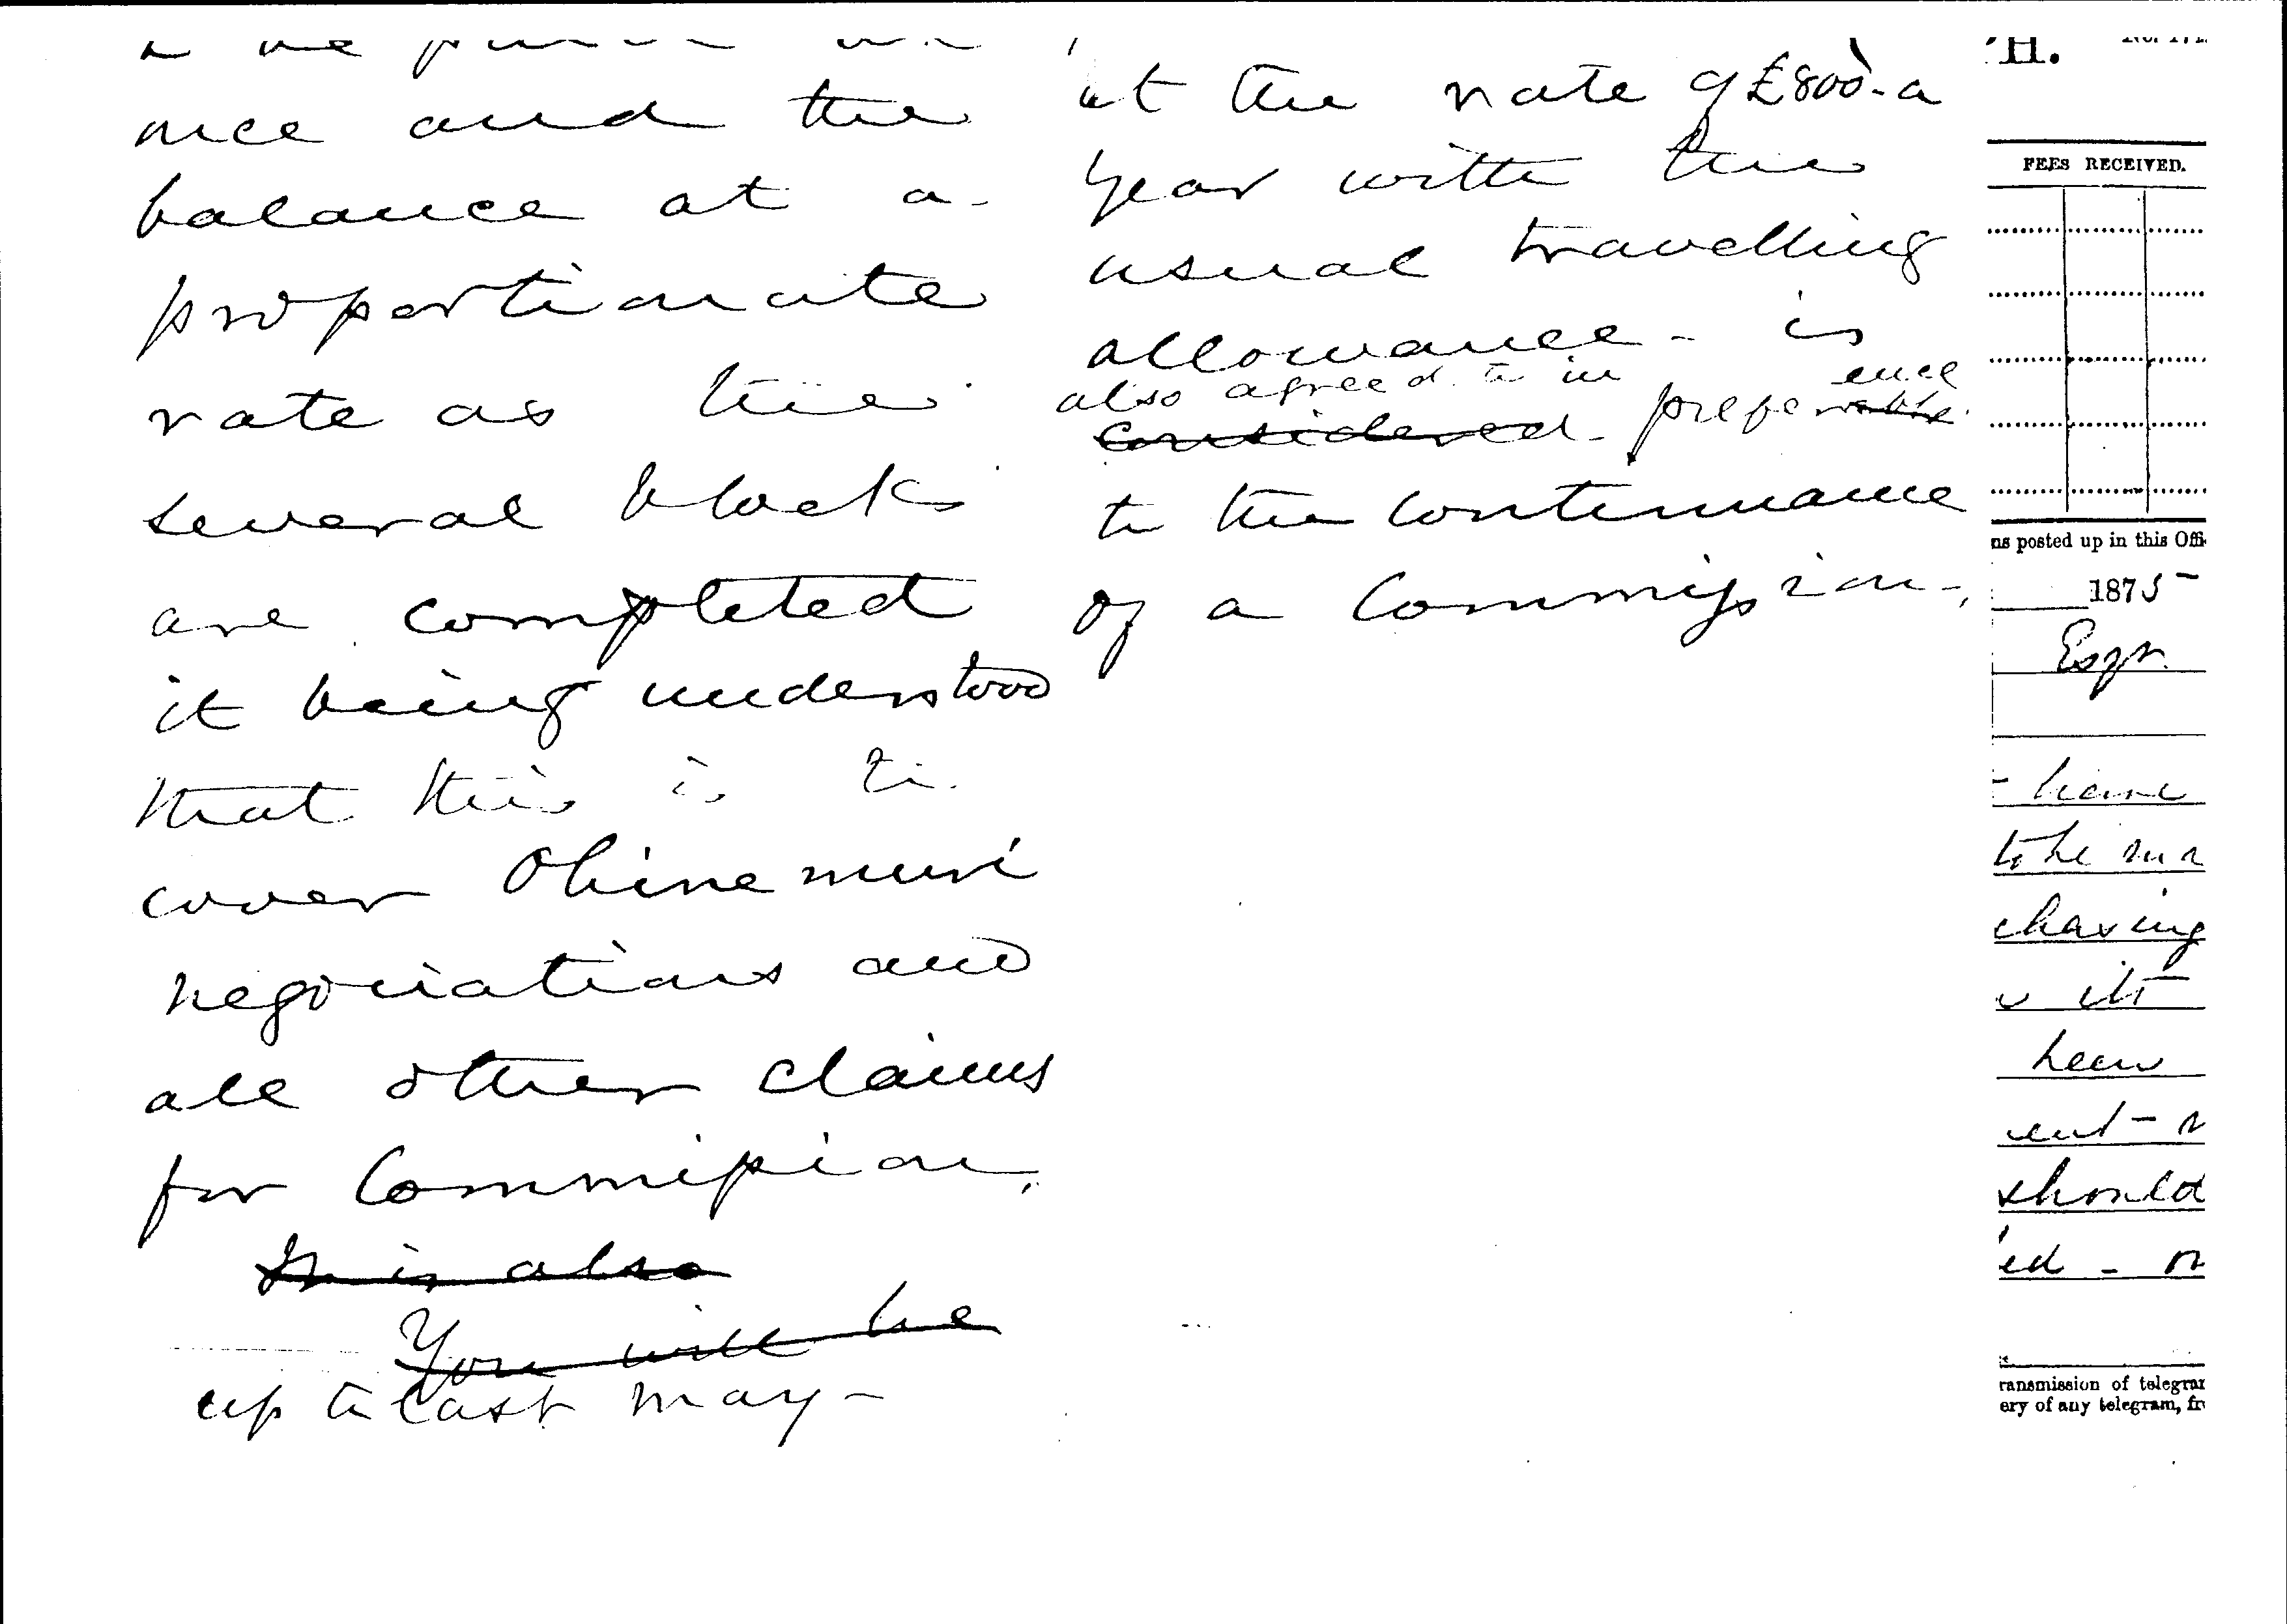 once and the
balance at a
proportionate
rate as the
several blocks
are completed
it being understood
that this is to
cover Ohinemuri
negociations and
all other claims
for Commission,
It is also
You will be
up to last May -
at the rate of £800 - a
year with the
usual travelling
allowance - is
also agreed to in ence
considered - preferable
to the continuance
of a Commission -,
H.
FEES RECEIVED.
ns posted up in this Offi
1875
Esqr.
have
to be
chasing
been
should
ed -
ransmission of telegram
ery of any telegram, fr